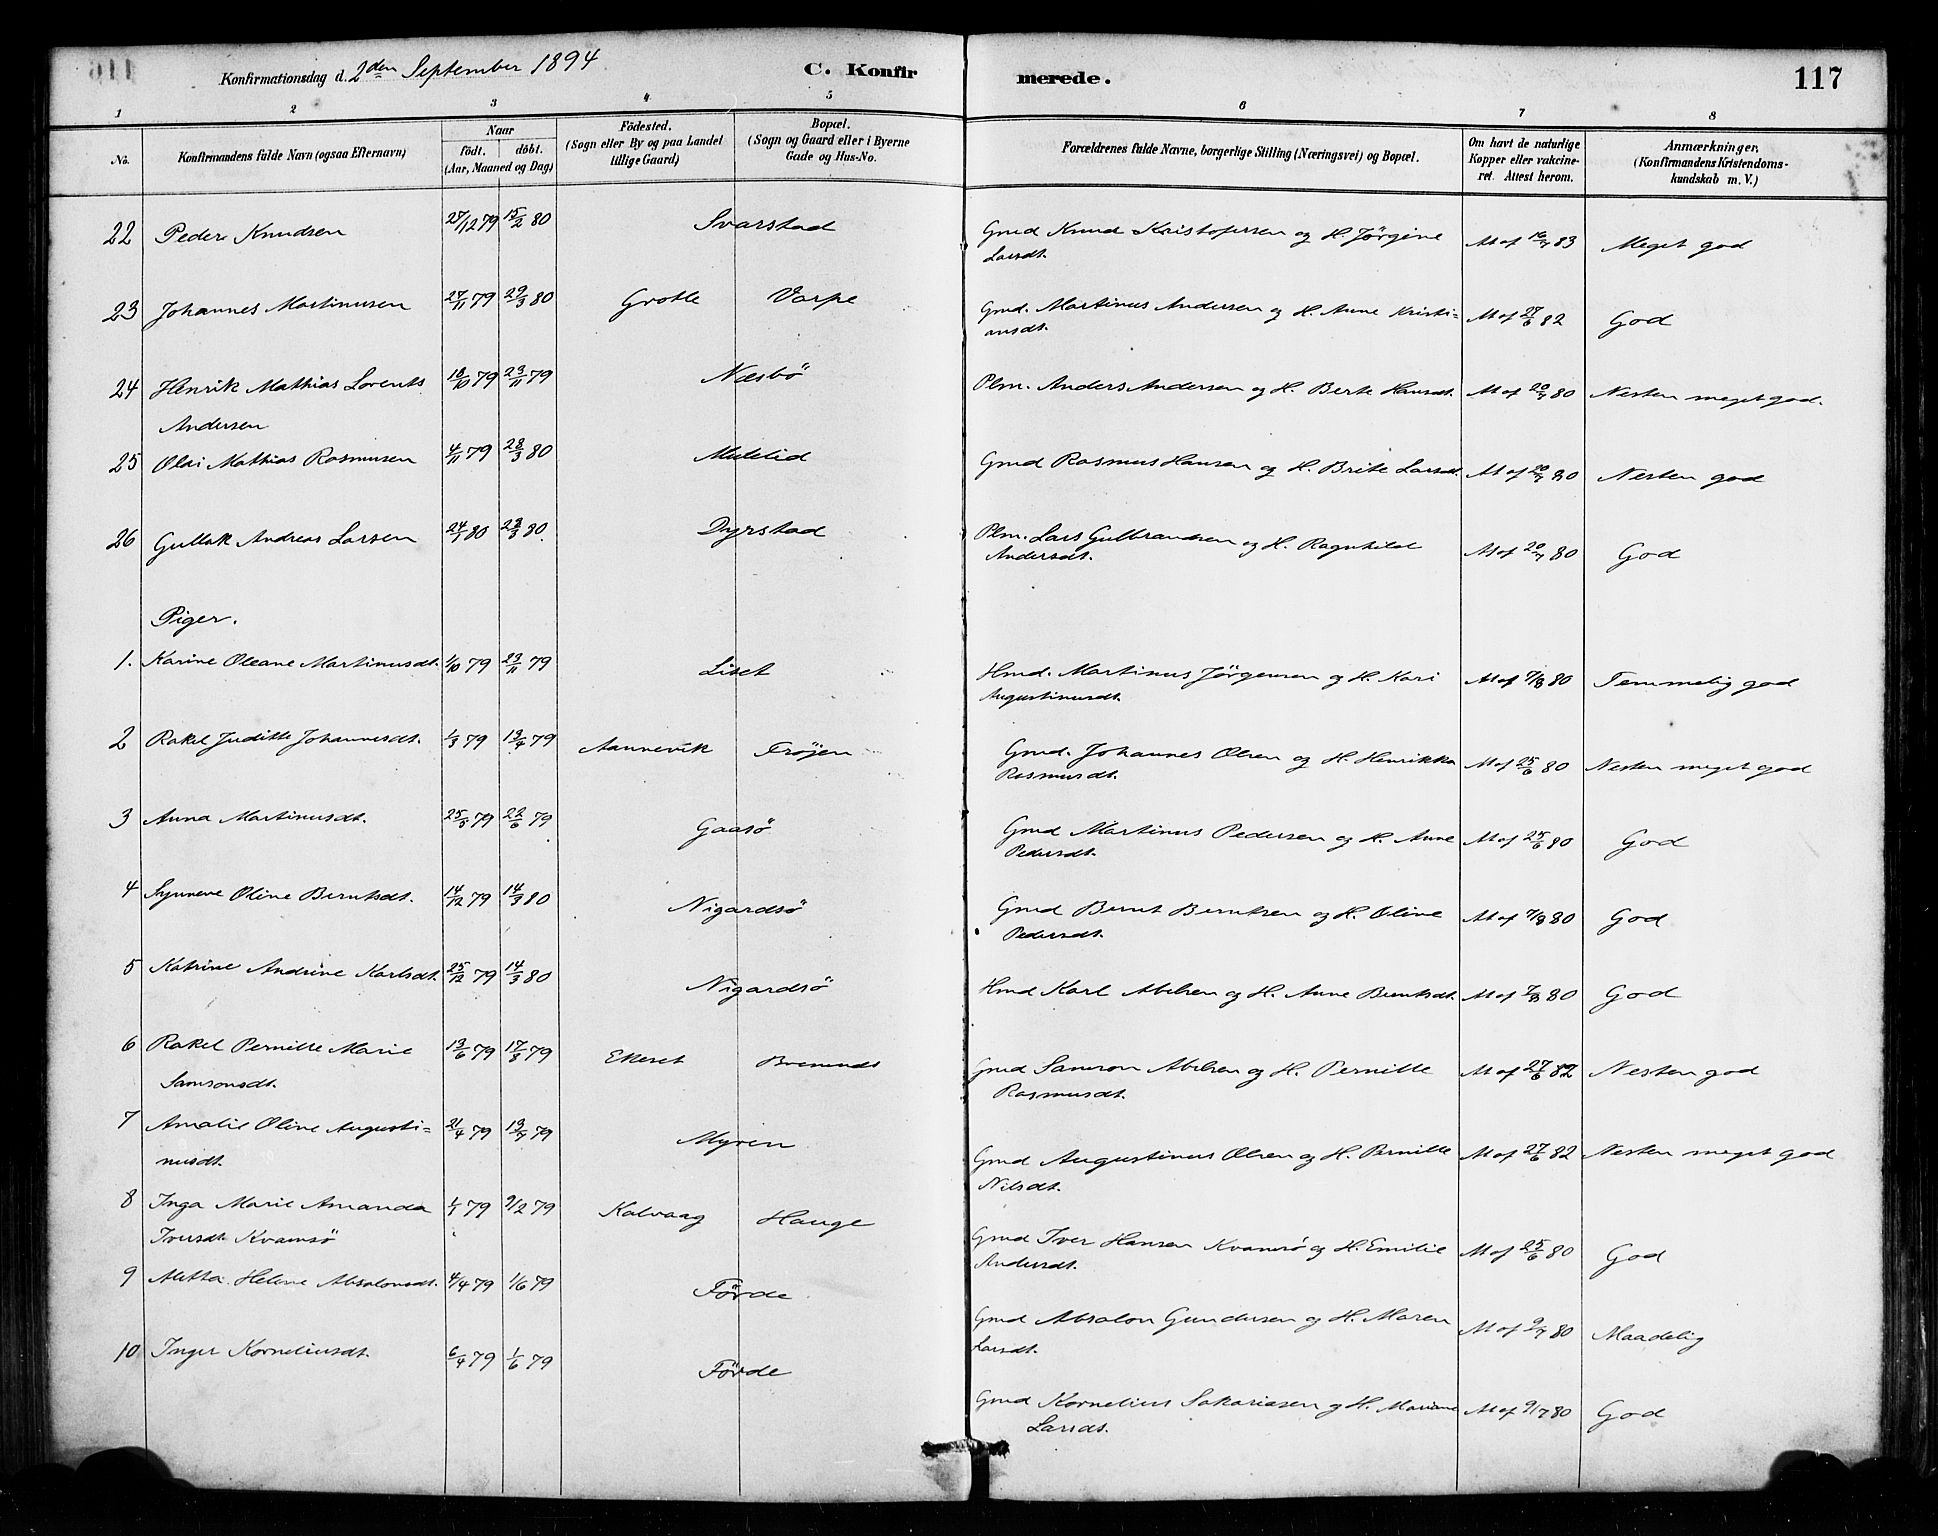 Konfirmationsdag d. 2den September 1894
C. Konfirmerede.
117
1 2 3 4 5 6 7 8
No.
Konfirmandens fulde Navn (ogsaa Efternavn)
Naar
födt. döbt.
(Aar, Maaned og Dag)
Födested.
(Sogn eller By og paa Landet
tillige Gaard)
Bopæl.
(Sogn og Gaard eller i Byerne
Gade og Hus-No.
Forældrenes fulde Navne, borgerlige Stilling (Næringsvei) og Bopæl.
Om havt de naturlige
Kopper eller vakcine-
ret. Attest herom.
Anmærkninger.
(Konfirmandens Kristendoms-
kundskab m. V.)
22 Peder Knudsen 27/12 79 15/2 80 Svarstad Gmd Knud Kristofersen og H. Jörgine At af 83 Meget god
Larsdt.
23 Johannes Martinusen 27/11 79 29/3 80 Grotle Varpe Gmd. Martinus Andersen og H. Anne Kristi= At af 27/6 82 God
ansdt.
24 Henrik Mathias Lorents 18/10 79 23/11 79 Næsbö Plm. Anders Andersen og H. Berte Hansdt. At af 20/7 80 Nesten meget god.
Andersen
25 Olai Mathias Rasmusen 4/11 79 28/3 80 Mulelid Gmd Rasmus Hansen og H. Brite Larsdt. At af 20/7 80 Nesten god
26 Gullak Andreas Larsen 24/1 80 28/3 80. Dyrstad Plm. Lars Gulbrandsen og H. Ragnhilde At af 20/7 80 God
Andersdt.
Piger.
1. Karine Oleane Martinusdt. 1/10 79 23/11 79 Liset Hmd. Martinus Jörgensen og H. Kari At af 7/8 80 Temmelig god
Augustinusdt.
2 Rakel Juditte Johannesdt. 1/3 79 13/4 79 Aannevik Fröjen Gmd. Johannes Olsen og H. Henrikka At af 25/6 80 Nesten meget god
Rasmusdt.
3 Anna Martinusdt. 25/3 79 22/6 79 Gaasö Gmd Martinus Pedersen og H. Anne At af 25/6 80 God
Pedersdt.
4 Synneve Oline Berntsdt. 14/12 79 14/3 80 Nigardsö Gmd Bernt Berntsen og H. Oline At af 7/8 80 God
Pedersdt.
5 Katrine Andrine Karlsdt. 25/12 79 14/3 80 Nigardsö Hmd Karl Abelsen og H. Anne Berntsdt. At af 7/8 80 God
6 Rakel Pernille Marie 13/6 79 17/8 79 Ekeset Bremnes Gmd Samson Abelsen og H. Pernille At af 27/6 82 Nesten god
Samsonsdt. Rasmusdt.
7 Amalie Oline Augusti= 21/4 79 13/7 79 Myren Gmd Augustinus Olsen og H. Pernille At af 27/6 82 Nesten meget god
nusdt. Nilsdt.
8 Inga Marie Amanda 1/1 79 9/2 79 Kalvaag Hauge Gmd Iver Hansen Kvamsö og H. Emilie At af 25/6 80 God
Iversdt. Kvamsö Andersdt.
9 Aletta Helene Absalonsdt. 4/4 79 1/6 79 Förde Gmd Absalon Gundersen og H. Maren At af 9/7 80 Maadelig
Larsdt.
10 Inger Korneliusdt. 6/4 79 1/6 79 Förde Gmd Kornelius Sakariasen og H. Mariane At af 9/7 80 God
Larsdt.